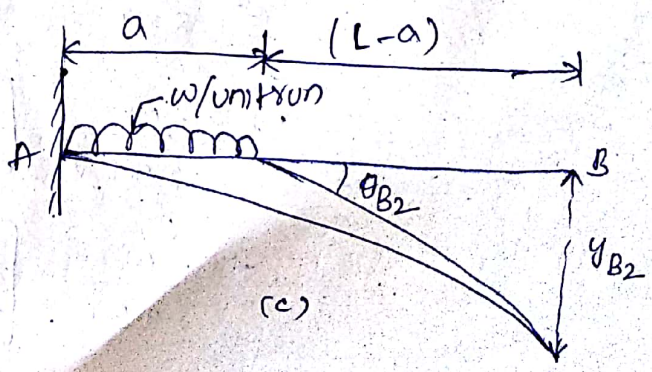 a
(L-a)
w/unitrun
A
B
θB2
yB2
(c)